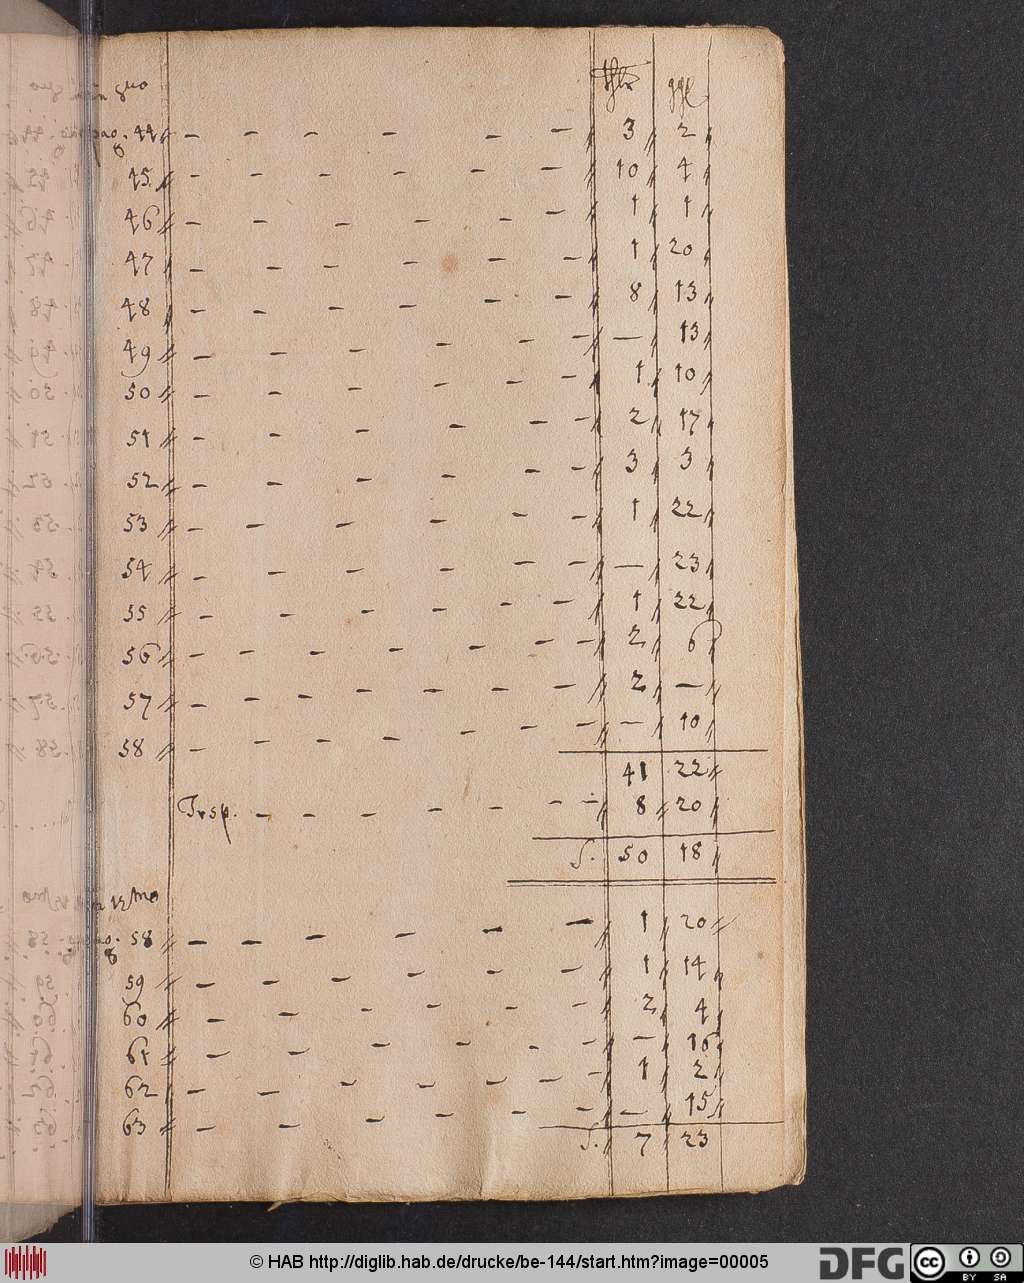 thlr ggl
pag. 44 — — — — — 3 2
45 — — — — — — 10 4
46 — — — — — — 1 1
47 — — — — — — 1 20
48 — — — — — — 8 13
49 — — — — — — — 13
50 — — — — — — 1 10
51 — — — — — — 2 17
52 — — — — — — 3 3
53 — — — — — — 1 22
54 — — — — — — — 23
55 — — — — — — 1 22
56 — — — — — — 2 6
57 — — — — — — 2 —
58 — — — — — — — 10
41 22
Trsp. — — — — — — — 8 20
S. 50 18
pag. 58 — — — — — — 1 20
59 — — — — — — 1 14
60 — — — — — — 2 4
61 — — — — — — — 16
62 — — — — — — — 1 2
63 — — — — — — — 15
S. 7 23
© HAB http://diglib.hab.de/drucke/be-144/start.htm?image=00005 DFG cc BY SA